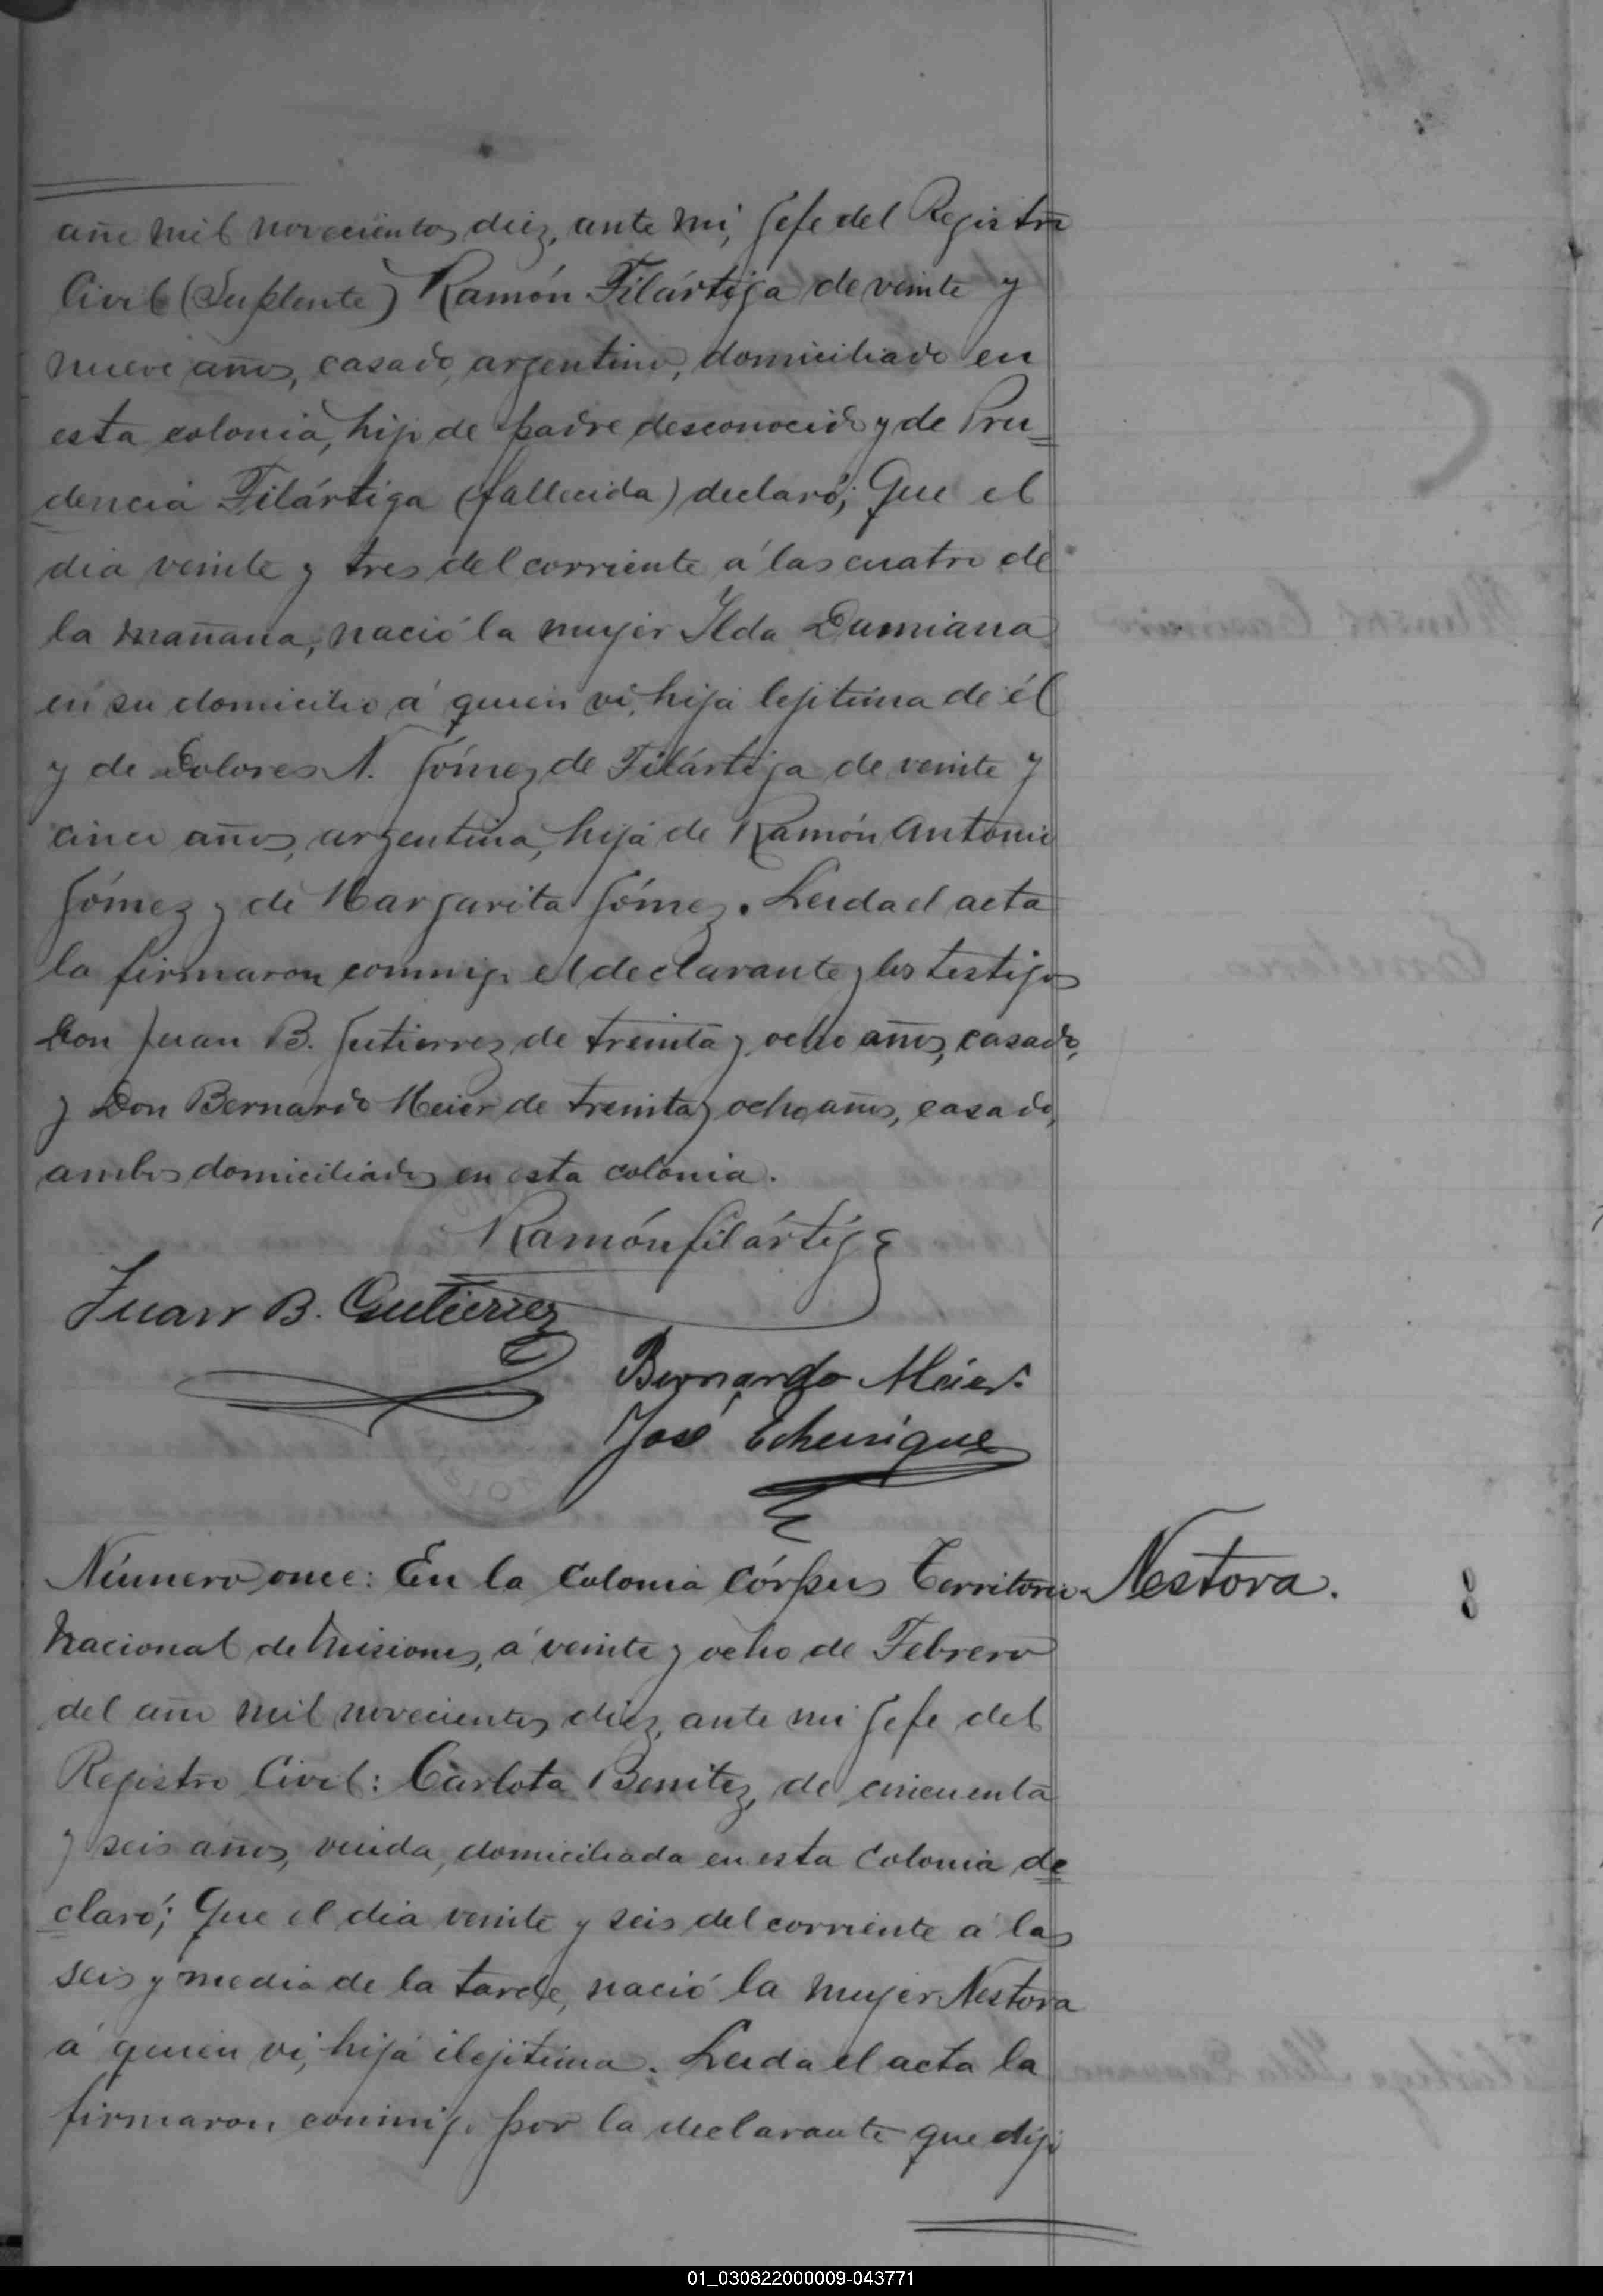 año mil novecientos diez, ante mí, Jefe del Registro
Civil (Suplente) Ramón Filártiga de veinte y
nueve años, casado, argentino, domiciliado en
esta colonia, hijo de padre desconocido y de Pru=
dencia Filártiga (fallecida) declaró; Que el
dia veinte y tres del corriente á las cuatro de
la mañana, nació la mujer Ilda Damiana
en su domicilio á quien vi, hija lejitima de él
y de Dolores N. Gómez de Filártiga de veinte y
cinco años, argentina, hija de Ramón Antonio
Gómez y de Margarita Gómez. Leida el acta
la firmaron conmigo el declarante y los testigos
Don Juan B. Gutierrez de treinta y ocho años, casado,
y Don Bernardo Meier de treinta y ocho años, casado,
ambos domiciliados en esta colonia.
Ramón Filártiga
Juan B. Gutierrez
Bernardo Meier.
José Echenique
Número once: En la Colonia Córpus Territorio
Nestora.
Nacional de Misiones, á veinte y ocho de Febrero
del año mil novecientos diez, ante mi Jefe del
Registro Civil: Carlota Benitez, de cincuenta
y seis años, viuda, domiciliada en esta Colonia de
claró; Que el dia veinte y seis del corriente á las
seis y media de la tarde, nació la mujer Nestora
á quien vi, hija ilejitima. Leida el acta la
firmaron conmigo por la declarante que dijo
01_030822000009-043771